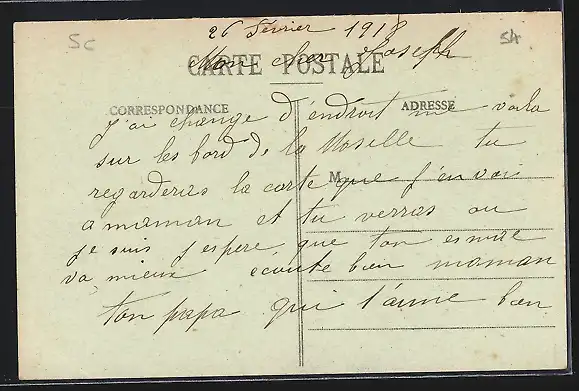 5c
26 Février 1918
54
Mon cher Joseph
CARTE POSTALE
CORRESPONDANCE
ADRESSE
J'ai change d'endroit me voila
sur les bord de la Moselle tu
M
regarderas la carte que j'envoi
a maman et tu verras ou
je suis j'espere que ton
va mieux écoute bien maman
ton papa qui t'aime bien